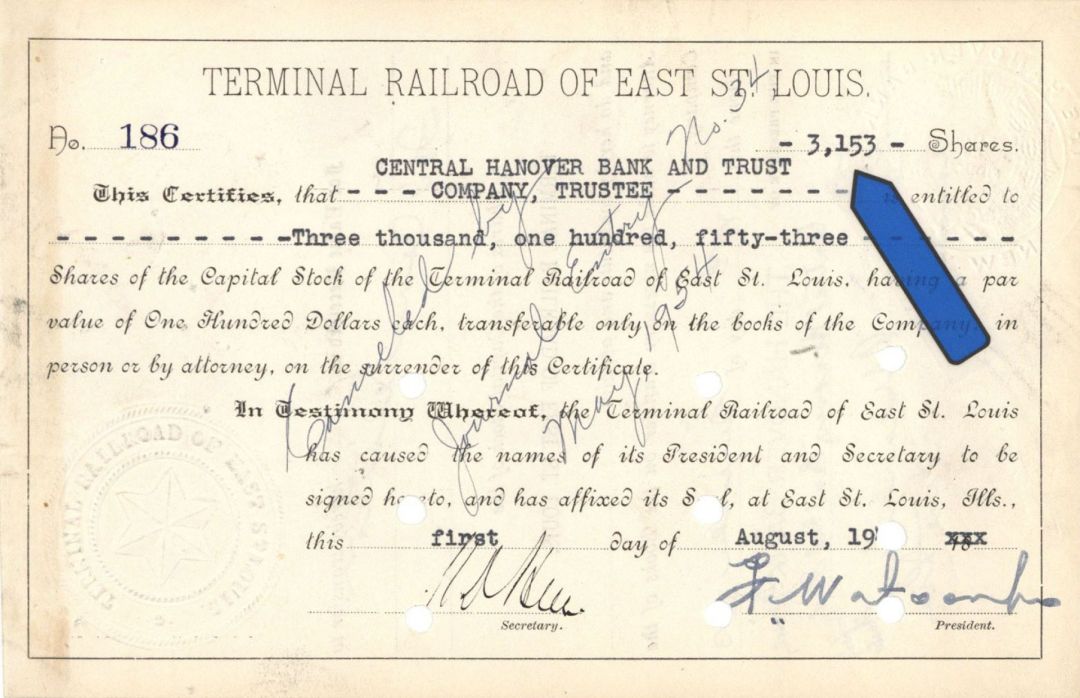 TERMINAL RAILROAD OF EAST ST. LOUIS.
No. 186 - 3,153 - Shares.
CENTRAL HANOVER BANK AND TRUST
This Certifies, that - - - COMPANY, TRUSTEE - - - - - - - is entitled to
- - - - - - - - - -Three thousand, one hundred, fifty-three - - - - - -
Shares of the Capital Stock of the Terminal Railroad of East St. Louis, having a par
value of One Hundred Dollars each, transferable only on the books of the Company, in
person or by attorney, on the surrender of this Certificate.
In Testimony Whereof, the Terminal Railroad of East St. Louis
has caused the names of its President and Secretary to be
signed hereto, and has affixed its Seal, at East St. Louis, Ills.,
this first day of August, 19 xxx
Secretary. President.
Cancelled by
Journal Entry No. 34,
May, 1954
TERMINAL RAILROAD OF EAST ST. LOUIS